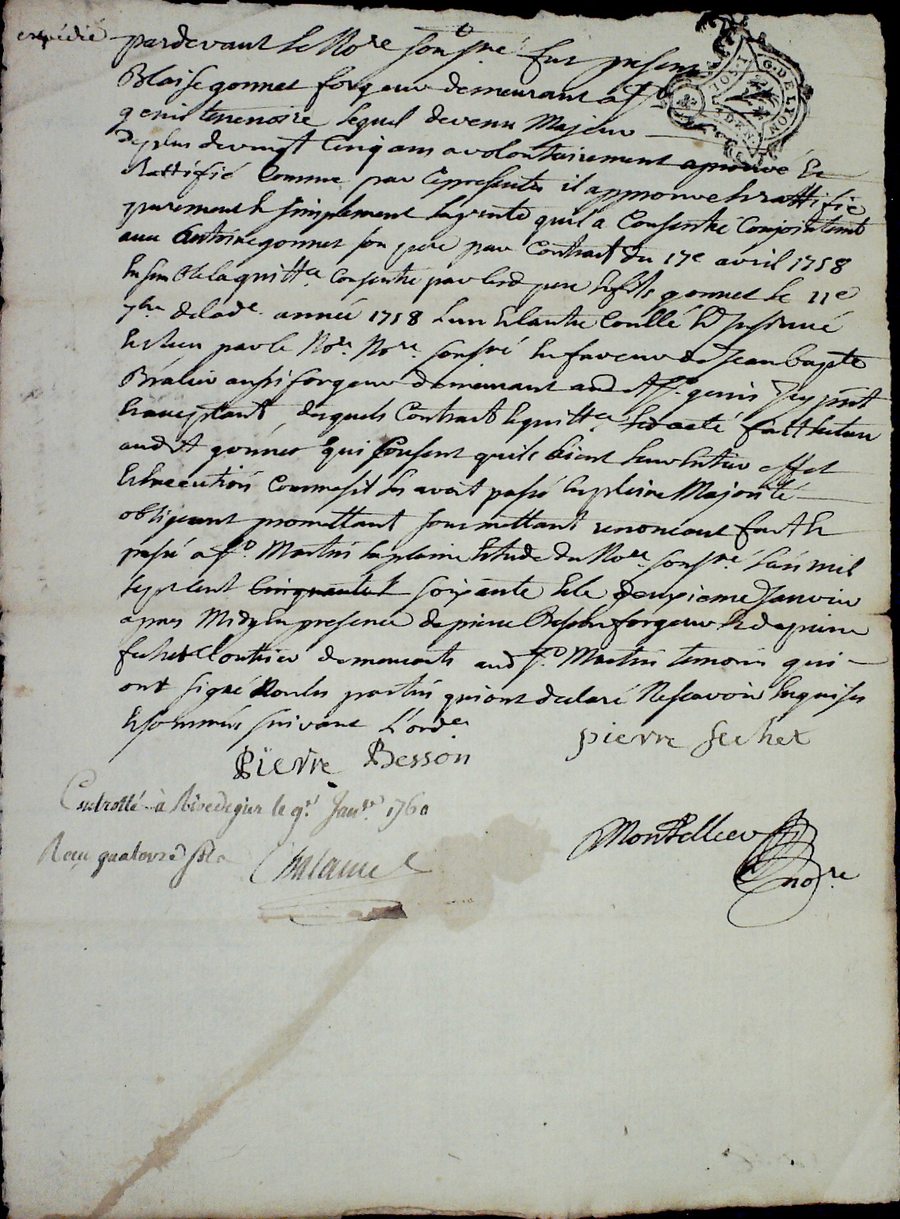 expédié
pardevant le No.re sousné fut présent
Blaise gonnet forgeur demeurant a St
genis terrenoire lequel devenu Majeur
de plus de vingt Cinq ans a volontairement aprouvé Et
Rattifié Comme par Ces presentes il approuve Et rattifie
purement Et simplement la vente qu'il a Consentie Conjointement
avec Antoine gonnet son pere par Contract du 17e avril 1758
Ensem Ble la quittce Consentie par lesd pere Et fils gonnet le 11e
7bre de lade année 1758 L'un Et l'autre Conllé Et Insinué
Et Reçu par le No.re sousné En faveur de Jean bapte
aussi forgeur demeurant aud St genis Icy pnt
Et acceptant, desquels Contract Et quittce a eté fait lecture
aud St gonnet qui Consent qu'ils aient leur Entier effet
Et Execution Comme s'il les avoit passé En pleine Majorité
obligeant promettant soumettant renonceant fait Et
passé a St Martin la plaine Etude du No.re sousné L'an mil
sept Cent Cinquante Soixante Et le deuxieme Janvier
apres Midy En presence de pierre Besson forgeur Et de pierre
fechet Cloutier demeurants aud St Martin temoins qui
ont signé Non les parties qui ont declaré Ne sçavoir Enquises
Et sommées suivant L'ord.ce
pierre Besson
pierre fechet
Controllé à Rivedegier le 9e Janer 1760
Reçu quatorze s
Montellier
no.re
G. DE LYON
DEN